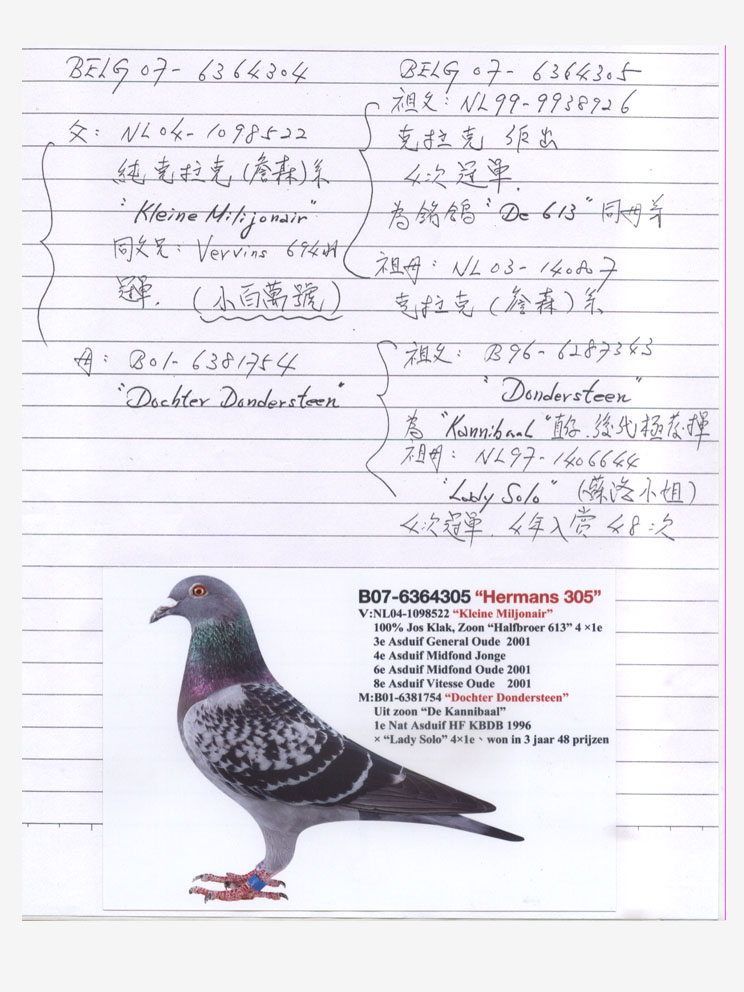 BELG 07-6364304
BELG 07-6364305
父: NL04-1098522
純克拉克(詹森)系
"Kleine Milijonair"
同父兄: Vervins 694羽
冠軍. (小百萬號)
祖父: NL99-9938926
克拉克 作出
4次冠軍.
為銘鴿 "De 613" 同母弟
祖母: NL03-140807
克拉克(詹森)系
母: B01-6381754
"Dochter Dondersteen"
祖父: B96-6287343
"Dondersteen"
為 "Kannibaal" 直子.後代極發揮
祖母: NL97-1406644
"Lady Solo" (蘇洛小姐)
4次冠軍. 4年入賞 48次
B07-6364305 “Hermans 305”
V:NL04-1098522 “Kleine Miljonair”
100% Jos Klak, Zoon “Halfbroer 613” 4 ×1e
3e Asduif General Oude 2001
4e Asduif Midfond Jonge
6e Asduif Midfond Oude 2001
8e Asduif Vitesse Oude 2001
M:B01-6381754 “Dochter Dondersteen”
Uit zoon “De Kannibaal”
1e Nat Asduif HF KBDB 1996
× “Lady Solo” 4×1e、won in 3 jaar 48 prijzen